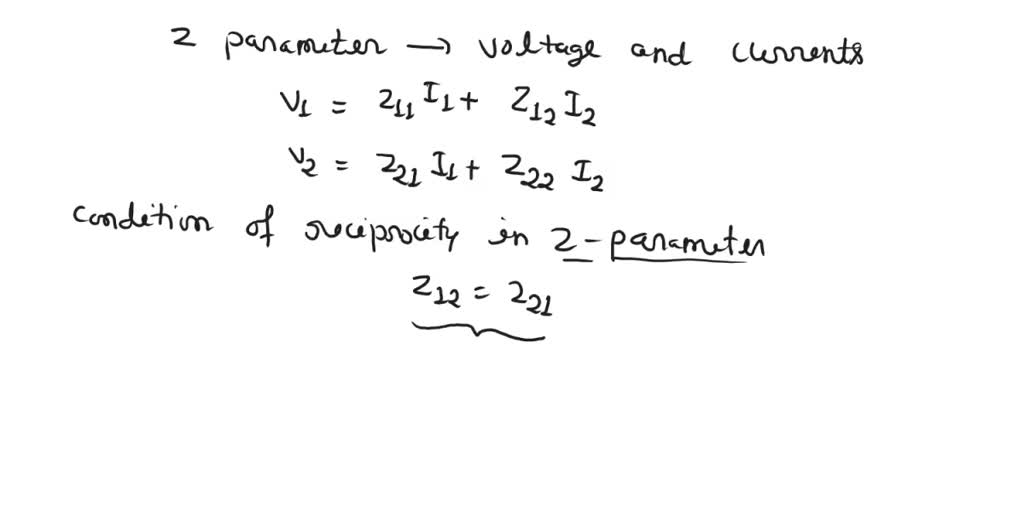 Z parameter → voltage and currents
V1 = Z11 I1 + Z12 I2
V2 = Z21 I1 + Z22 I2
condition of reciprocity in Z - parameter
Z12 = Z21